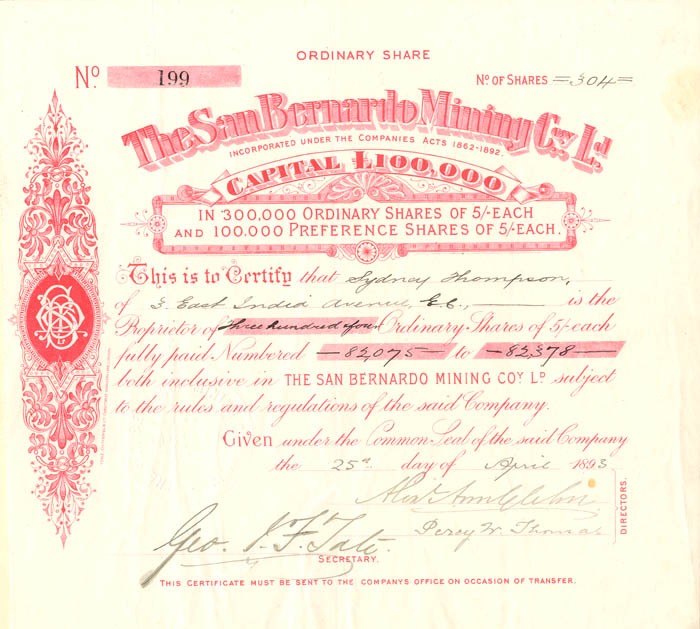 ORDINARY SHARE
No. 199
No. OF SHARES =304=
The San Bernardo Mining Coy. Ld.
INCORPORATED UNDER THE COMPANIES ACTS 1862-1892.
CAPITAL £100,000
IN 300,000 ORDINARY SHARES OF 5/- EACH
AND 100,000 PREFERENCE SHARES OF 5/- EACH.
This is to Certify that Sydney Thompson,
of East India Avenue, E.C., is the
Proprietor of three hundred four Ordinary Shares of 5/- each
fully paid Numbered —82,075— to —82,378—
both inclusive in THE SAN BERNARDO MINING COY LD. subject
to the rules and regulations of the said Company.
Given under the Common Seal of the said Company
the 25th day of April 1893
Percy W. Thomas
DIRECTORS.
Geo. J. F. Tate.
SECRETARY.
THIS CERTIFICATE MUST BE SENT TO THE COMPANYS OFFICE ON OCCASION OF TRANSFER.